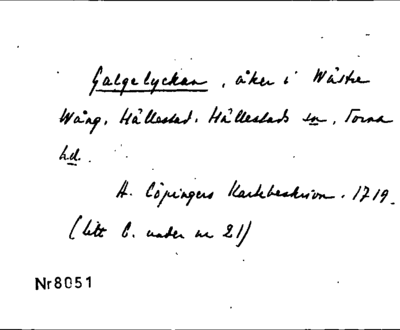 Galgelyckan, åker i Wästre
Wång, Hällestad. Hällestads sn, Torna
hd.
A. Cöpingers Kartebeskrivn. 1719.
(litt C. under nr 21)
Nr8051